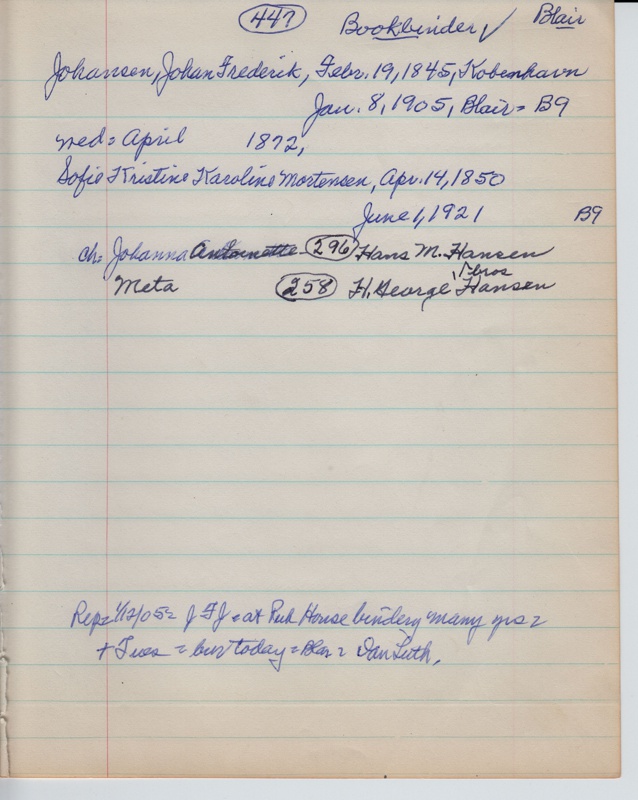 447 Bookbinder ✓ Blair
Johansen, Johan Frederik, Febr. 19, 1845, Kobenhavn
Jan. 8, 1905, Blair = B9
med = April 1872,
Sofie Kristine Karoline Mortensen, Apr. 14, 1850
June 1, 1921 B9
ch = Johanna Antoinette 296 Hans M. Hansen
bros
Meta 258 H. George Hansen
Rep = 1/12/05 = J F J = at Pub House bindery many yrs =
+ Tues = bur today = Blair = Dan Luth.